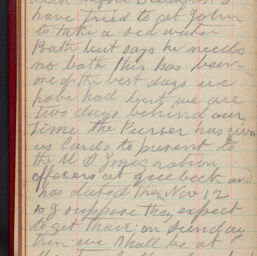 have tried to get John
to take a sea water
Bath but says he needs
no bath this has been
one of the best days we
have had but we are
two days behind our
time the Purser has given
us Cards to present to
the U S Imigration
officers at quebeck and
has dated them Nov 12
so I suppose they expect
to get thair on Sunday
then we shall be at